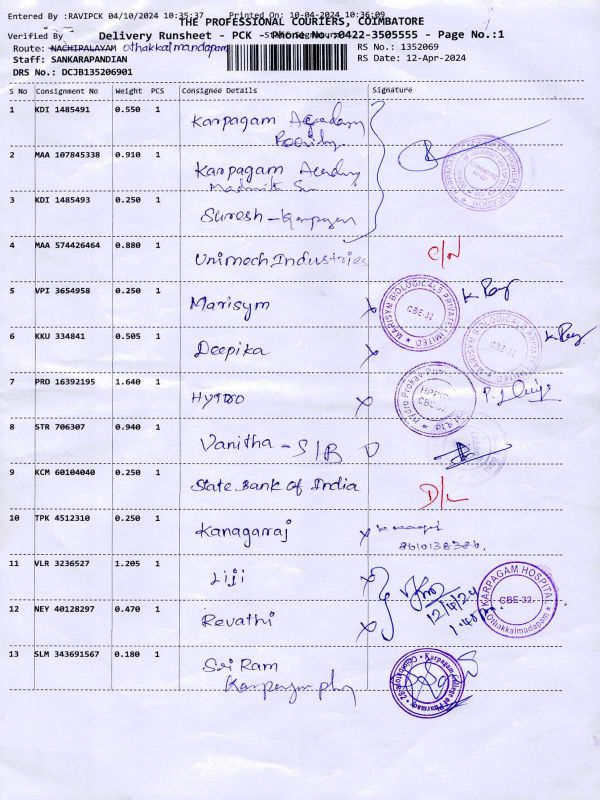 Entered By :RAVIPCK 04/10/2024 10:35:37 Printed On: 10-04-2024 10:36:09
THE PROFESSIONAL COURIERS, COIMBATORE
Verified By
Delivery Runsheet - PCK - Phone No.:0422-3505555 - Page No.:1
Route: NACHIPALAYAM Othakkalmandapam
RS No.: 1352069
Staff: SANKARAPANDIAN
RS Date: 12-Apr-2024
DRS No.: DCJB135206901
S No Consignment No Weight PCS Consignee Details Signature
1 KDI 1485491 0.550 1 Karpagam Academy
2 MAA 107845338 0.910 1 Karpagam Academy
3 KDI 1485493 0.250 1 Suresh - Karpagam
4 MAA 574426464 0.880 1 Unimech Industries C/N
5 VPI 3654958 0.250 1 Marisym
MARISYM BIOLOGICALS PRIVATE LIMITED
CBE-32
6 KKU 334841 0.505 1 Deepika
7 PRO 16392195 1.640 1 Hydro
8 STR 706307 0.940 1 Vanitha - S/B
9 KCM 60104040 0.250 1 State Bank of India D/L
10 TPK 4512310 0.250 1 Kanagarraj
11 VLR 3236527 1.205 1 Liji
12/4/24
KARPAGAM HOSPITAL
CBE-32.
Othakkalmandapam
12 NEY 40128297 0.470 1 Revathi
13 SLM 343691567 0.180 1 Sri Ram
Karpagam College of Pharmacy